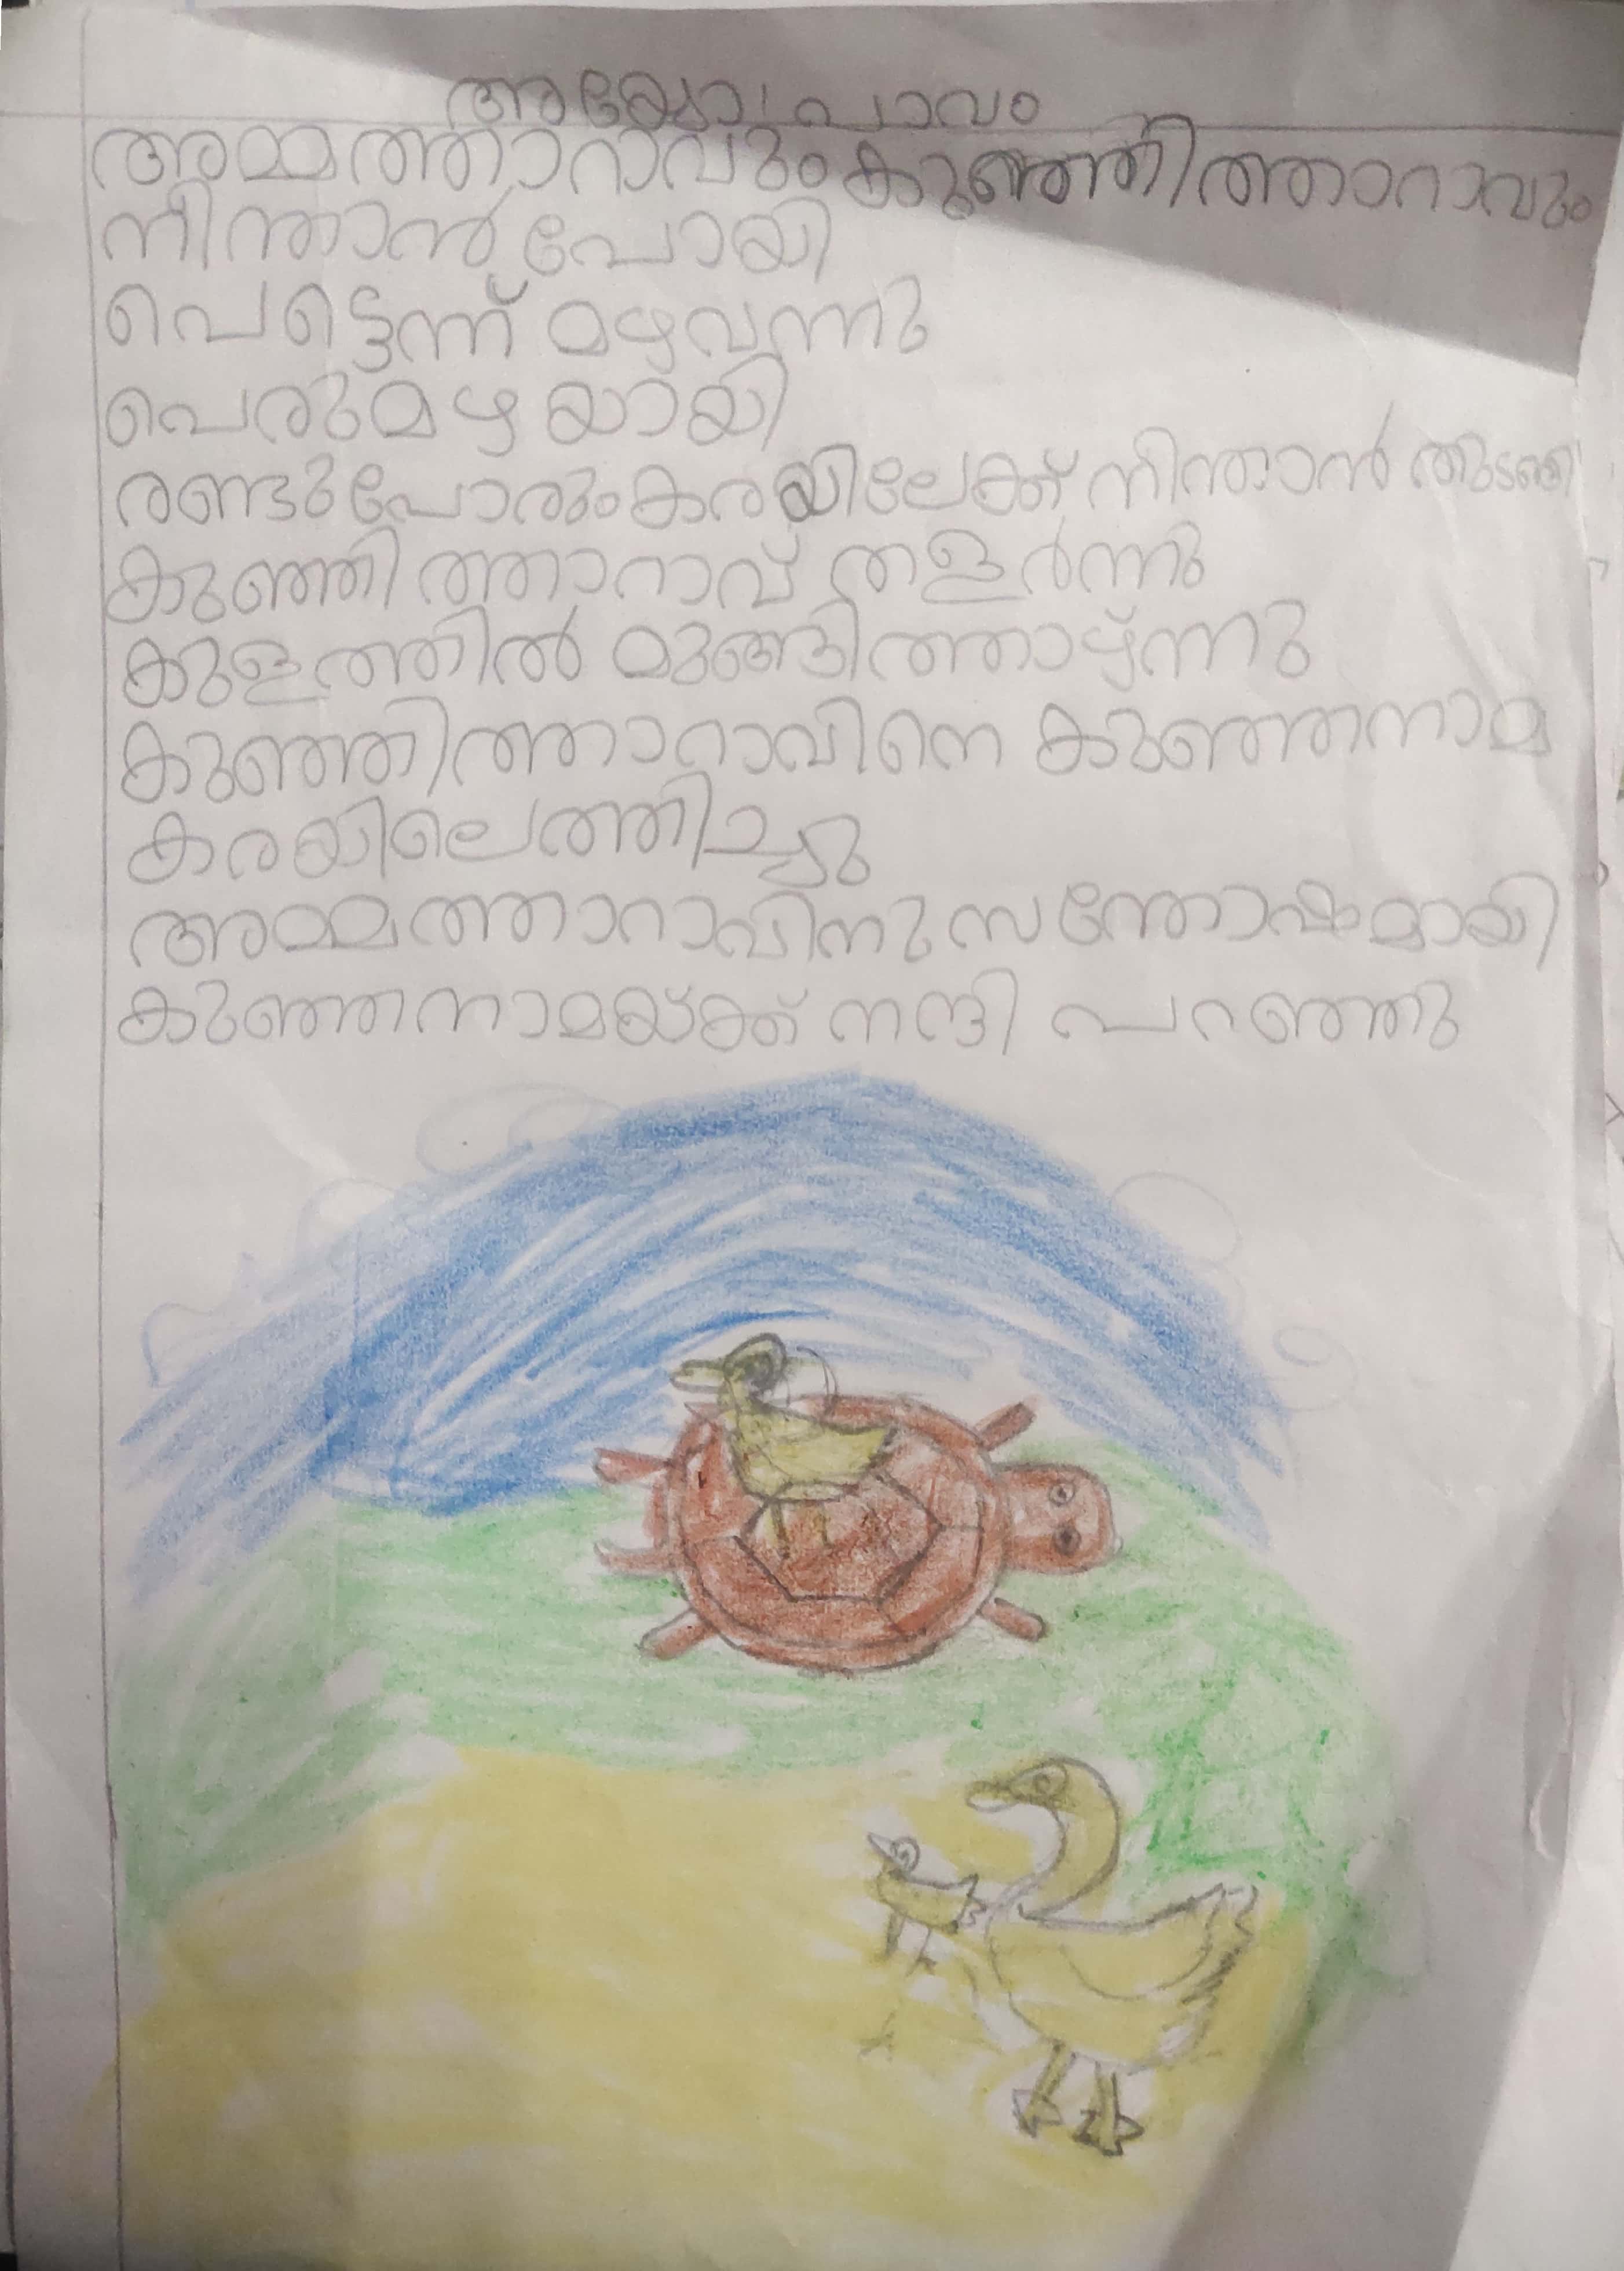 അയ്യോ! പാവം
അമ്മത്താറാവും കുഞ്ഞിത്താറാവും
നീന്താൻ പോയി
പെട്ടെന്ന് മഴവന്നു
പെരുമഴ യായി
രണ്ടുപോരും കരയിലേക്ക് നീന്താൻ തുടങ്ങി
കുഞ്ഞി ത്താറാവ് തളർന്നു
കുളത്തിൽ മുങ്ങിത്താഴ്ന്നു
കുഞ്ഞിത്താറാവിനെ കുഞ്ഞനാമ
കരയിലെത്തിച്ചു
അമ്മത്താറാവിനു സന്തോഷമായി
കുഞ്ഞനാമയ്ക്ക് നന്ദി പറഞ്ഞു